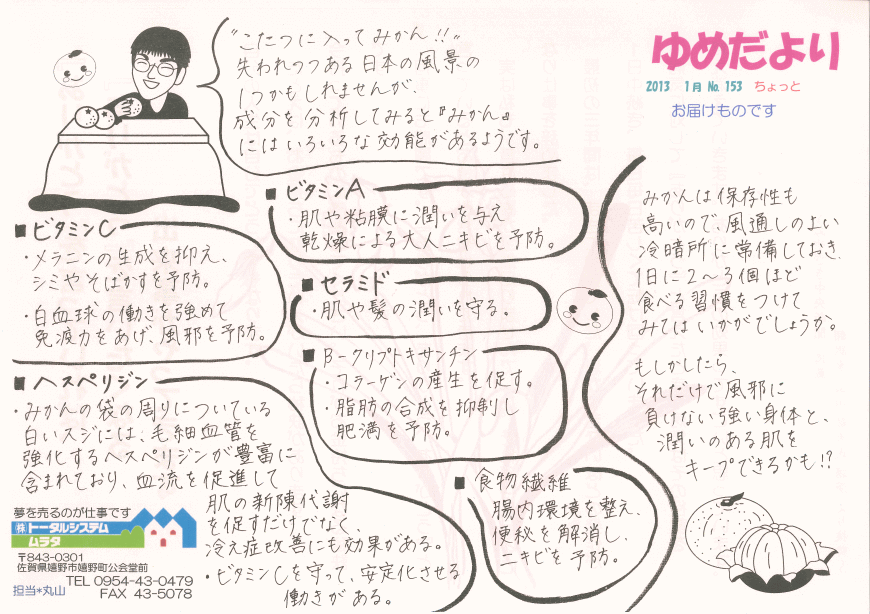 ゆめだより
2013 1月 No.153 ちょっと
お届けものです
"こたつに入ってみかん!!"
失われつつある日本の風景の
1つかもしれませんが、
成分を分析してみると『みかん』
にはいろいろな効能があるようです。
■ビタミンA
・肌や粘膜に潤いを与え
乾燥による大人ニキビを予防。
■ビタミンC
・メラニンの生成を抑え、
シミやそばかすを予防。
・白血球の働きを強めて
免疫力をあげ、風邪を予防。
■セラミド
・肌や髪の潤いを守る。
■B-クリプトキサンチン
・コラーゲンの産生を促す。
・脂肪の合成を抑制し
肥満を予防。
■ヘスペリジン
・みかんの袋の周りについている
白いスジには、毛細血管を
強化するヘスペリジンが豊富に
含まれており、血流を促進して
肌の新陳代謝
を促すだけでなく、
冷え症改善にも効果がある。
・ビタミンCを守って、安定化させる
働きがある。
■食物繊維
腸内環境を整え、
便秘を解消し、
ニキビを予防。
みかんは保存性も
高いので、風通しのよい
冷暗所に常備しておき、
1日に2〜3個ほど
食べる習慣をつけて
みてはいかがでしょうか。
もしかしたら、
それだけで風邪に
負けない強い身体と、
潤いのある肌を
キープできるかも!?
夢を売るのが仕事です
㈱トータルシステム
ムラタ
〒843-0301
佐賀県嬉野市嬉野町公会堂前
TEL 0954-43-0479
担当*丸山 FAX 43-5078